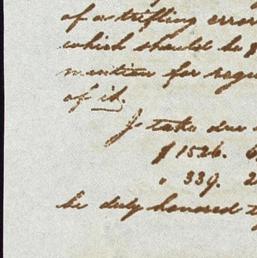 of a trifling error
which should be
mention for regu
of it.
I take due
$ 1526. 6
" 339. 2
be duly honored t